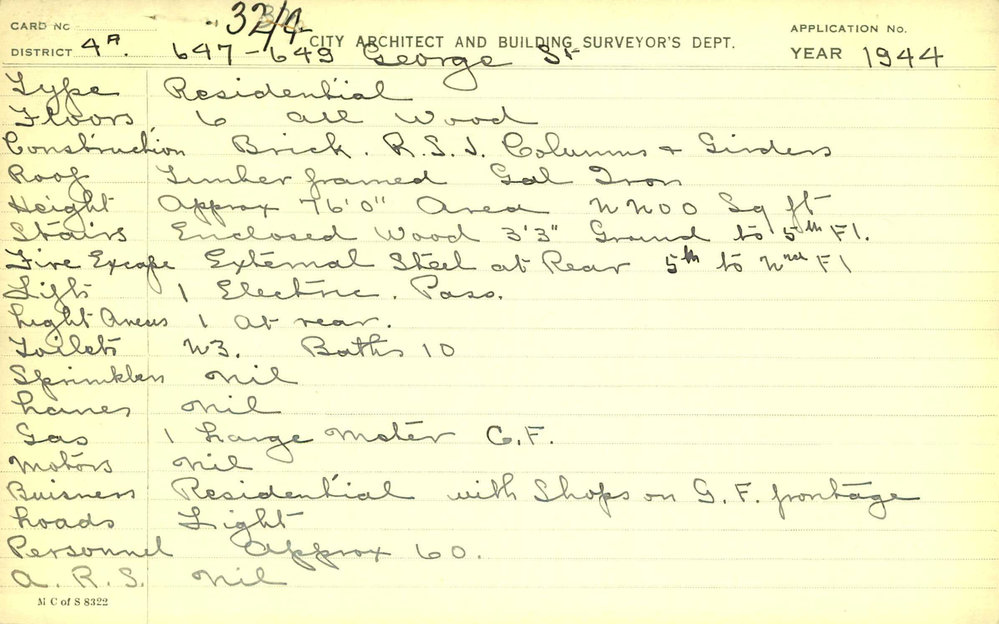 CARD NO
32/4
CITY ARCHITECT AND BUILDING SURVEYOR'S DEPT.
APPLICATION No.
DISTRICT 4A. 647-649 George St
YEAR 1944
Type Residential
Floors 6 all Wood
Construction Brick. R.S.J. Columns + Girders
Roof Timber framed Gal Iron
Height Approx 76'0" Area 2200 Sq ft
Stairs Enclosed Wood 3'3" Ground to 5th Fl.
Fire Escape External Steel at Rear 5th to 2nd Fl
Lifts 1 Electric. Pass.
Light Areas 1 at rear.
Toilets 23. Baths 10
Sprinklers nil
Lanes nil
Gas 1 Large Meter G.F.
Motors nil
Buisness Residential with Shops on G.F. frontage
Loads Light
Personnel Approx 60.
A.R.S. nil
M C of S 8322